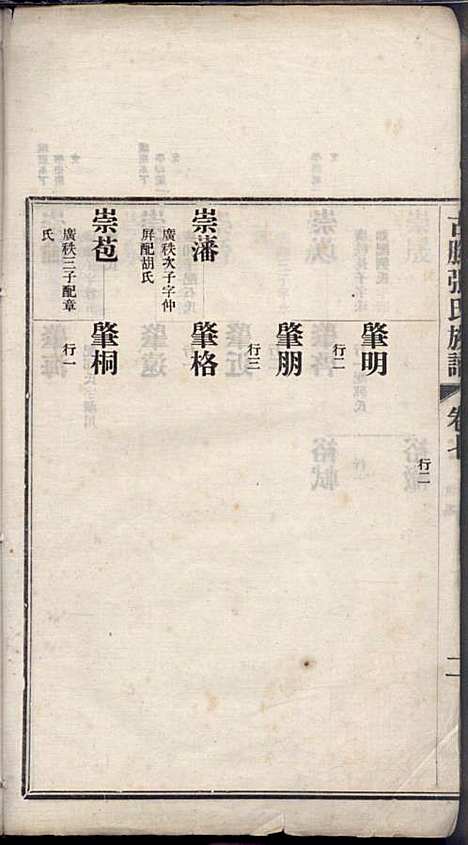 張氏族譜 卷七
二
行二
肇明
行二
肇朋
行三
崇藩
廣秩次子字仲
屏配胡氏
肇格
行二
崇苞
廣秩三子配章
氏
肇桐
行一